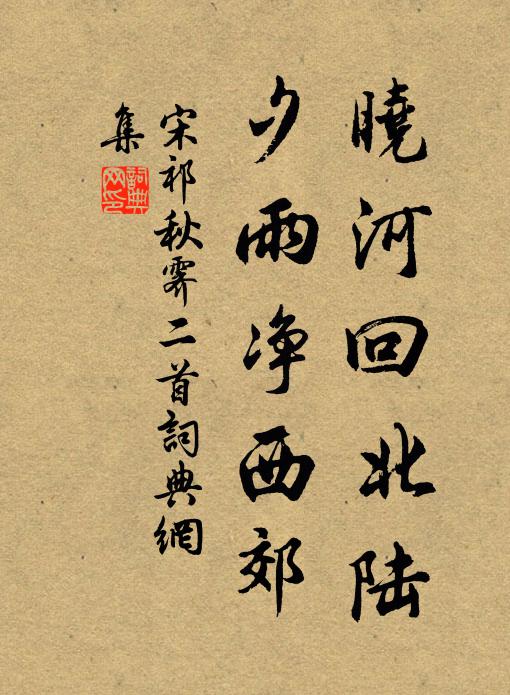 曉河回北陆
夕雨净西郊
宋祁秋霽二首詞典網
集
詞典
网印